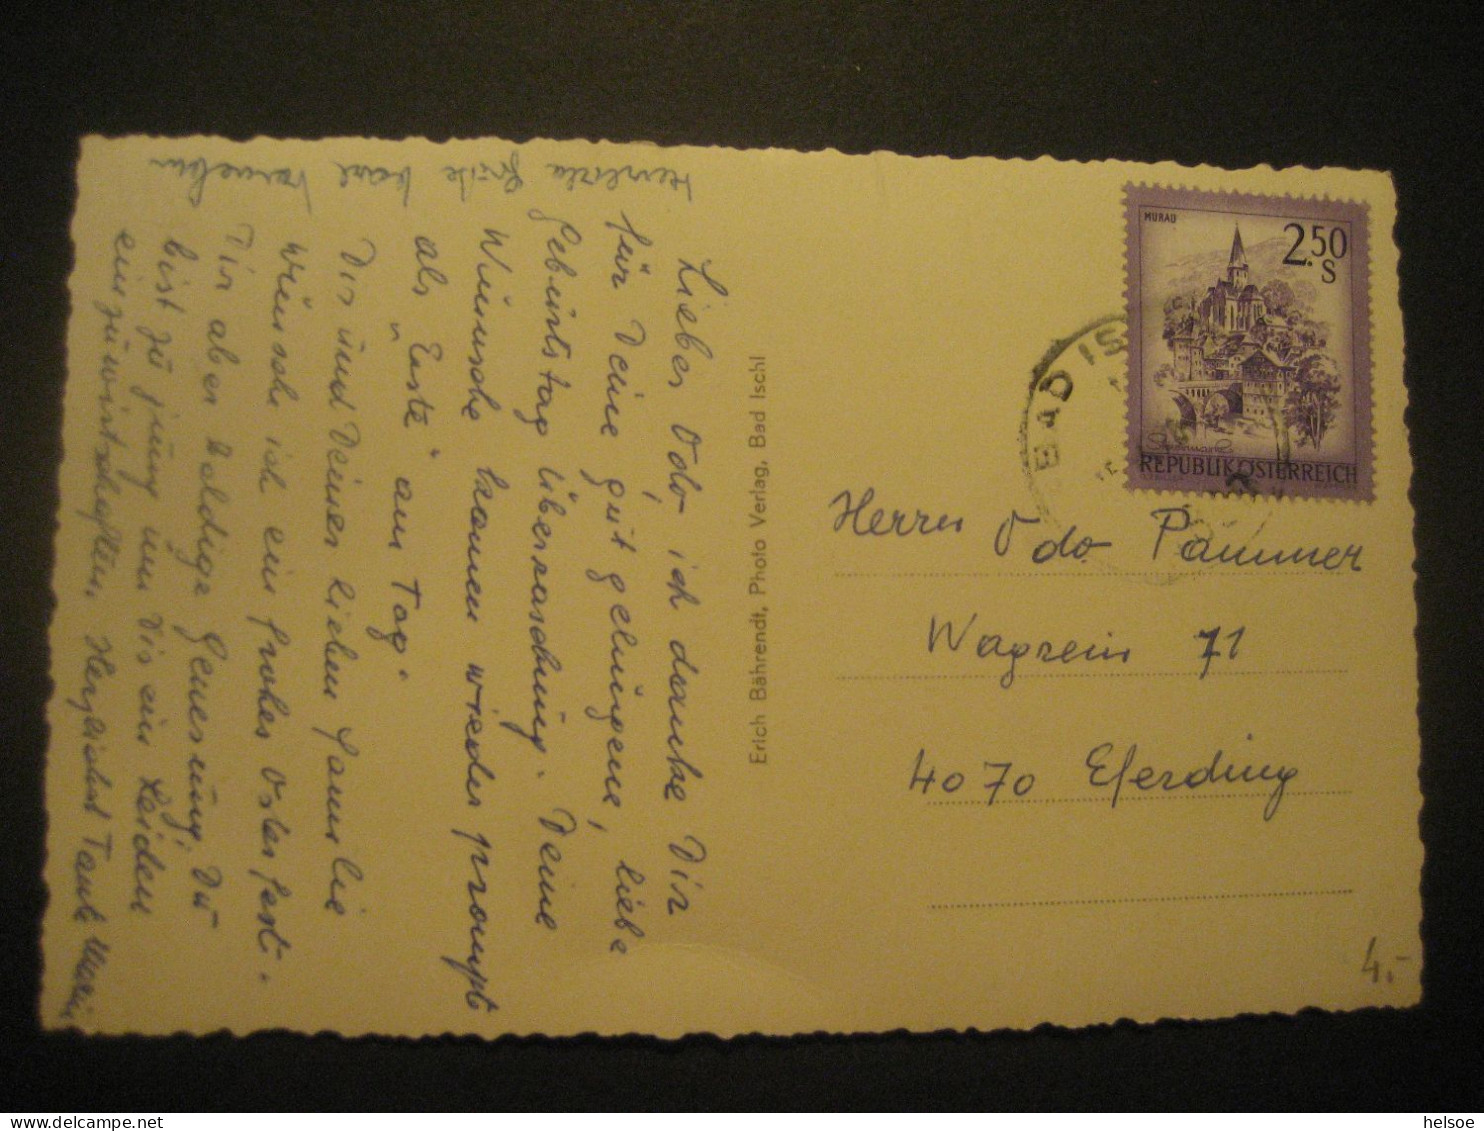 Lieber Odo, ich danke Dir
für Deine gut gelungene, liebe
Geburtstag überraschung. Deine
Wünsche kamen wieder prompt
als "Erste" am Tag.
Dir und Deiner lieben Familie
wünsche ich ein frohes Osterfest.
Dir aber baldige Genesung, Du
bist zu jung um Dir ein Leiden
einzuwirtschaften. Herzlichst Tante
Grüße
Erich Bährendt, Photo Verlag, Bad Ischl
MURAU
2.50
S
REPUBLIK ÖSTERREICH
BAD IS
Herrn Odo Pammer
Wagrein 71
4070 Eferding
4.-
helsoe